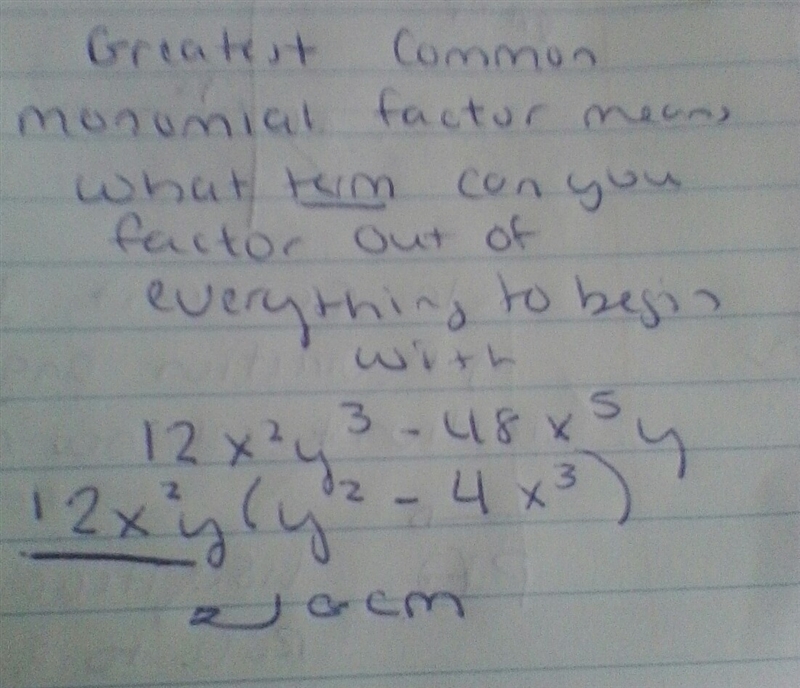 Greatest Common
monomial factor means
what term can you
factor out of
everything to begin
with
12x²y³ - 48x⁵y
12x²y(y² - 4x³)
GCM